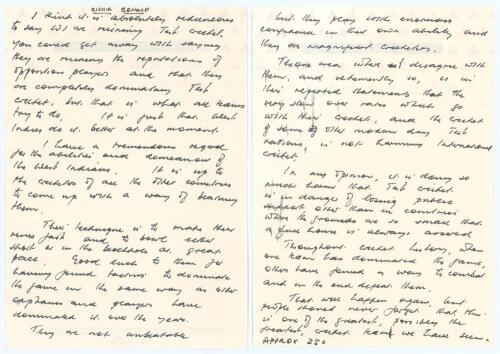 RICHIE BENAUD
I think it is absolutely ridiculous
to say WI are ruining Test cricket.
You could get away with saying
they are ruining the reputations of
opposition players and that they
are completely dominating Test
cricket, but that is what all teams
try to do. It is just that West
Indies do it better at the moment.
I have a tremendous regard
for the abilities and demeanour of
the West Indians. It is up to
the cricketers of all the other countries
to come up with a way of beating
them.
Their technique is to make their
runs fast and to bowl either
short or in the blockhole at great
pace. Good luck to them for
having found tactics to dominate
the game in the same way as other
captains and players have
dominated it over the years.
They are not unbeatable
but they play with enormous
confidence in their own ability and
they are magnificent cricketers.
The one area where I disagree with
them, and vehemently so, is in
their reported statements that the
very slow over rates which go
with their cricket, and the cricket
of some of the other modern day Test
nations, is not harming International
cricket.
In my opinion, it is doing so
much harm that Test cricket
is in danger of losing public
support other than in countries
where the grounds are so small that
a full house is always assured
Throughout cricket history, when
one team has dominated the game,
others have found a way to combat
and in the end defeat them.
That will happen again, but
people should never forget that this
is one of the greatest, possibly the
greatest, cricket team we have seen.
APPROX 250